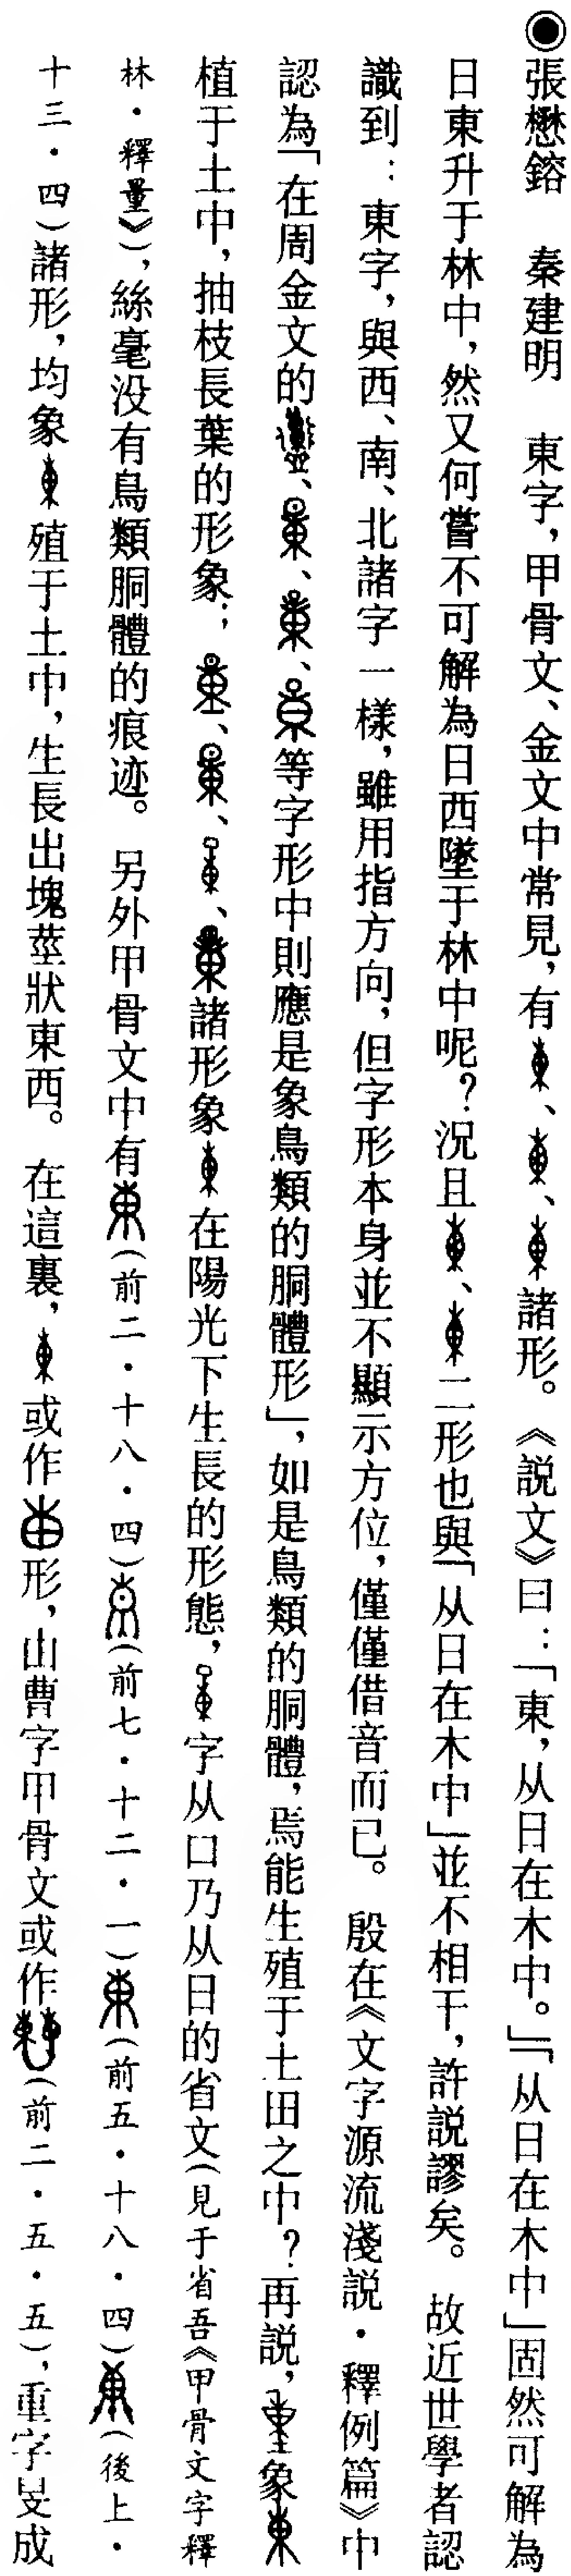 ◉張懋鎔　秦建明　東字，甲骨文、金文中常見，有、、諸形。《説文》曰：「東，从日在木中。」「从日在木中」固然可解為
日東升于林中，然又何嘗不可解為日西墜于林中呢？況且、二形也與「从日在木中」並不相干，許説謬矣。故近世學者認
識到：東字，與西、南、北諸字一樣，雖用指方向，但字形本身並不顯示方位，僅僅借音而已。　殷在《文字源流淺説·釋例篇》中
認為「在周金文的、、、等字形中則應是象鳥類的胴體形」，如是鳥類的胴體，焉能生殖于土田之中？再説，象
植于土中，抽枝長葉的形象；、、、諸形象在陽光下生長的形態，字从口乃从日的省文（見于省吾《甲骨文字釋
林·釋量》），絲毫没有鳥類胴體的痕迹。　另外甲骨文中有（前二·十八·四）（前七·十二·一）（前五·十八·四）（後上·
十三·四）諸形，均象殖于土中，生長出塊莖狀東西。　在這裏，或作形，山曹字甲骨文或作（前二·五·五），重字叏成